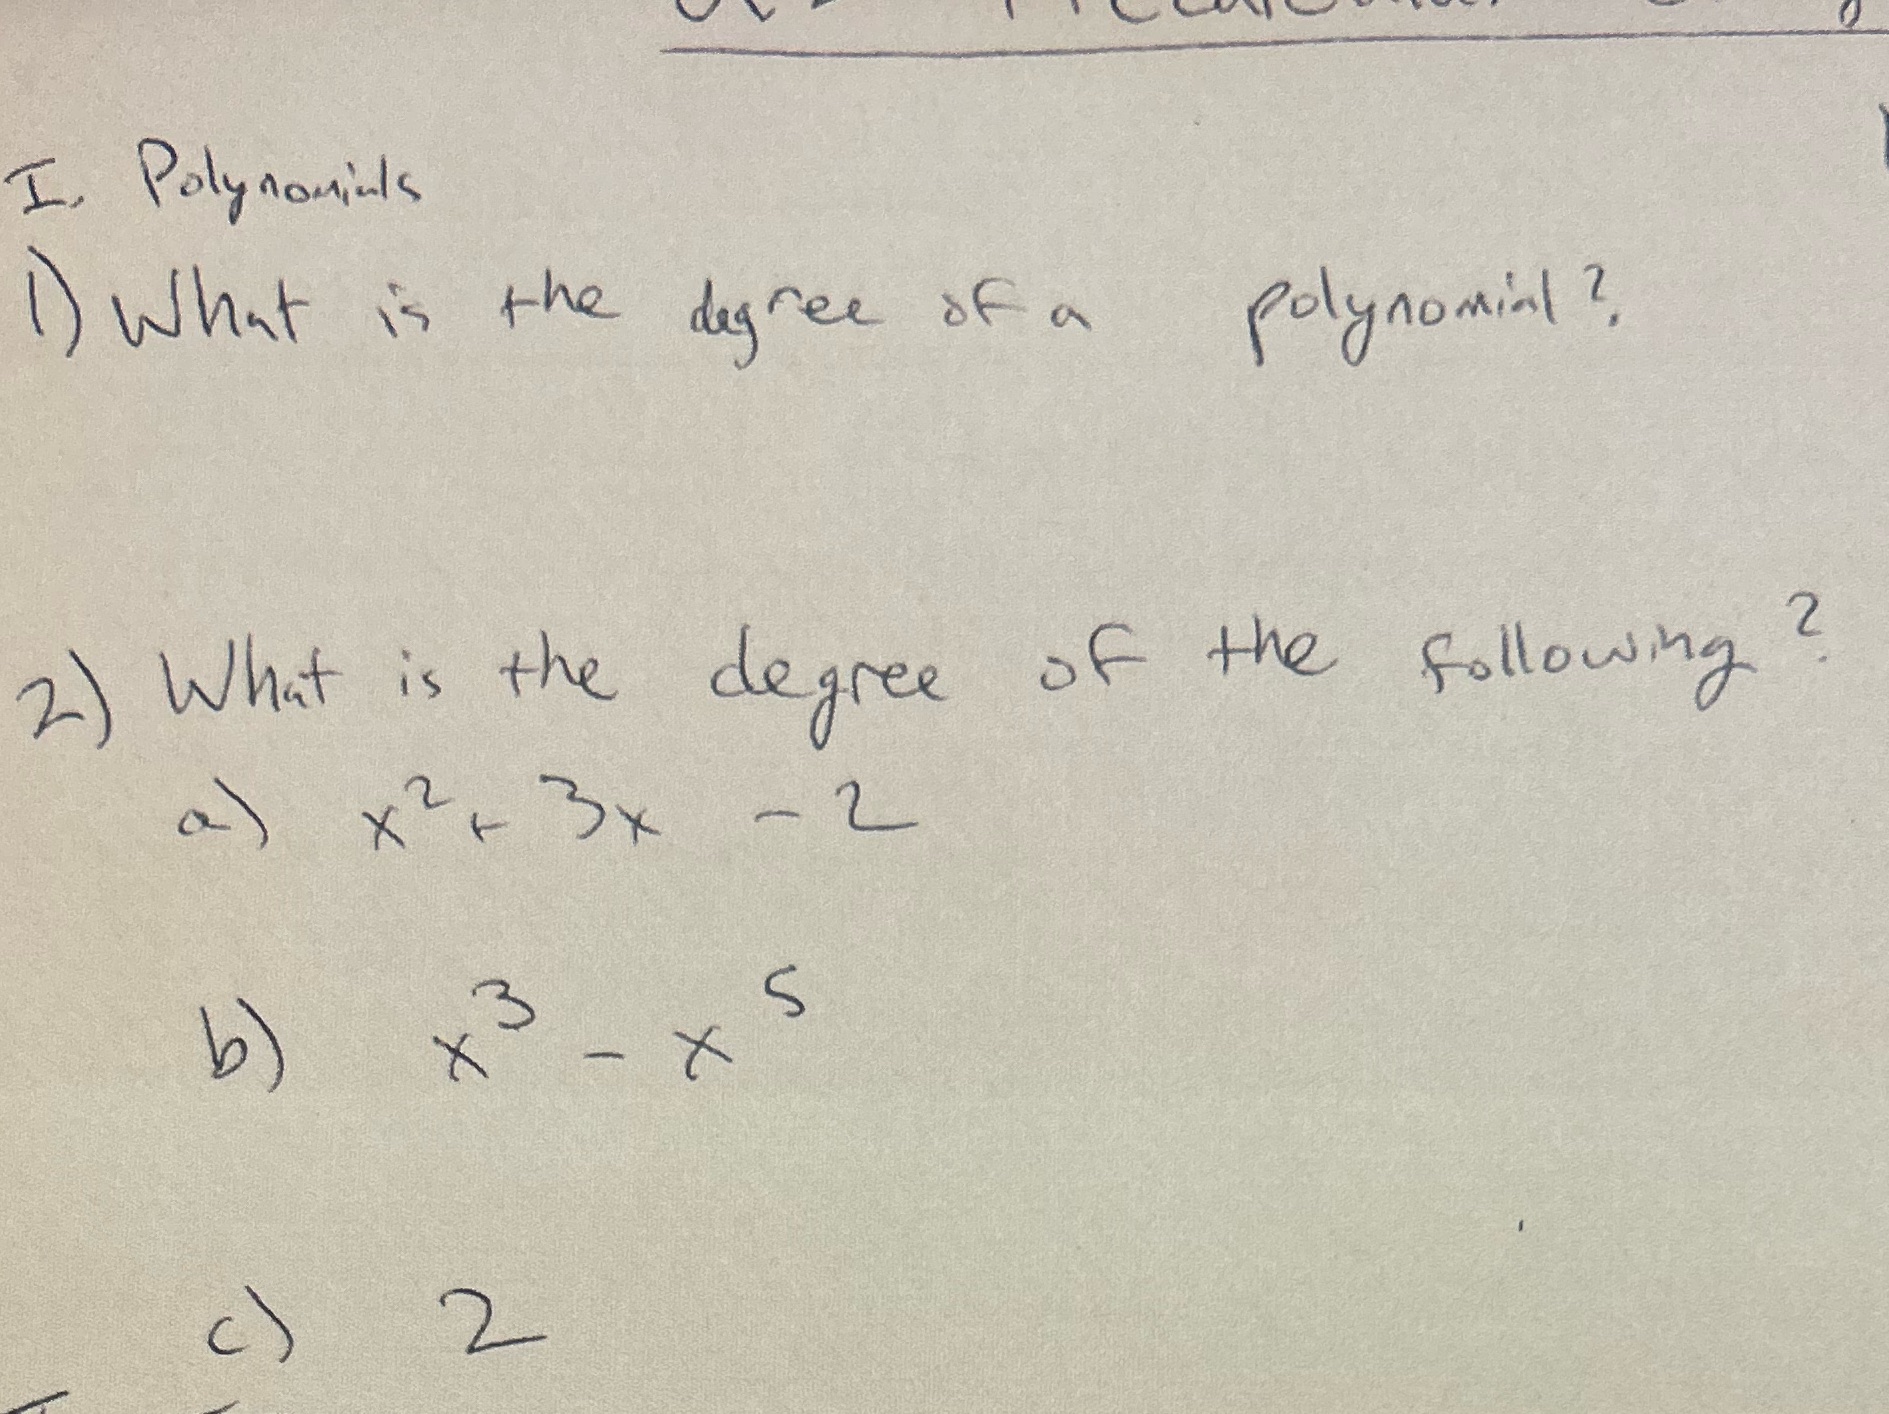 I. Polynomials
1) What is the degree of a polynomial?
2) What is the degree of the following?
a) x² + 3x - 2
b) x³ - x⁵
c) 2